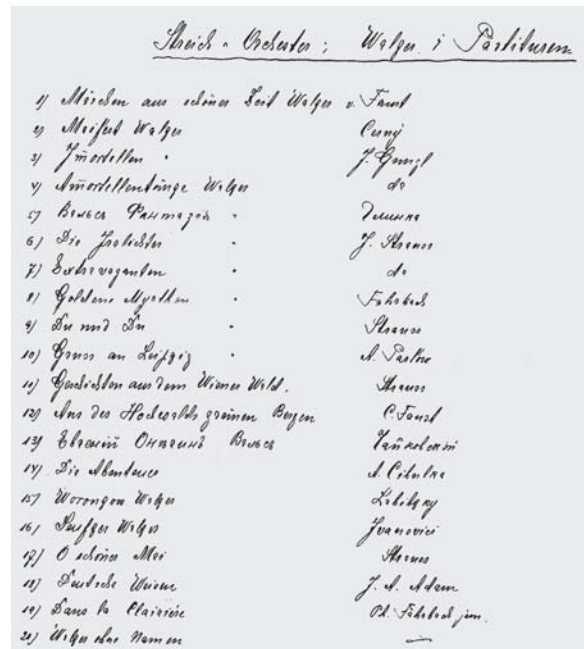 Streich-Orchester: Walzer i Partituren
1) Märchen aus schöner Zeit Walzer v. Faust
2) Walzer Cerný
3) Imortellen " J. Gungl
4) Amorettentänze Walzer do
5) Вальсъ Фантазія " Глинка
6) Die Irrlichter " J. Strauss
7) Extravaganten " do
8) Goldene Myrthen " Fahrbach
9) Du und Du " Strauss
10) Gruss an Leipzig " A.
11) Geschichten aus dem Wiener Wald. Strauss
12) Aus des Hochwalds grünen Bergen C. Faust
13) Евгеній Онѣгинъ Вальсъ Чайковскій
14) Die Abenteurer A. Cibulka
15) Woronzow Walzer Labitzky
16) Walzer Ivanovici
17) O schöner Mai Strauss
18) Deutsche Weisen J. A. Adam
19) Dans la Clairière Ph. Fahrbach jun.
20) Walzer ohne Namen —